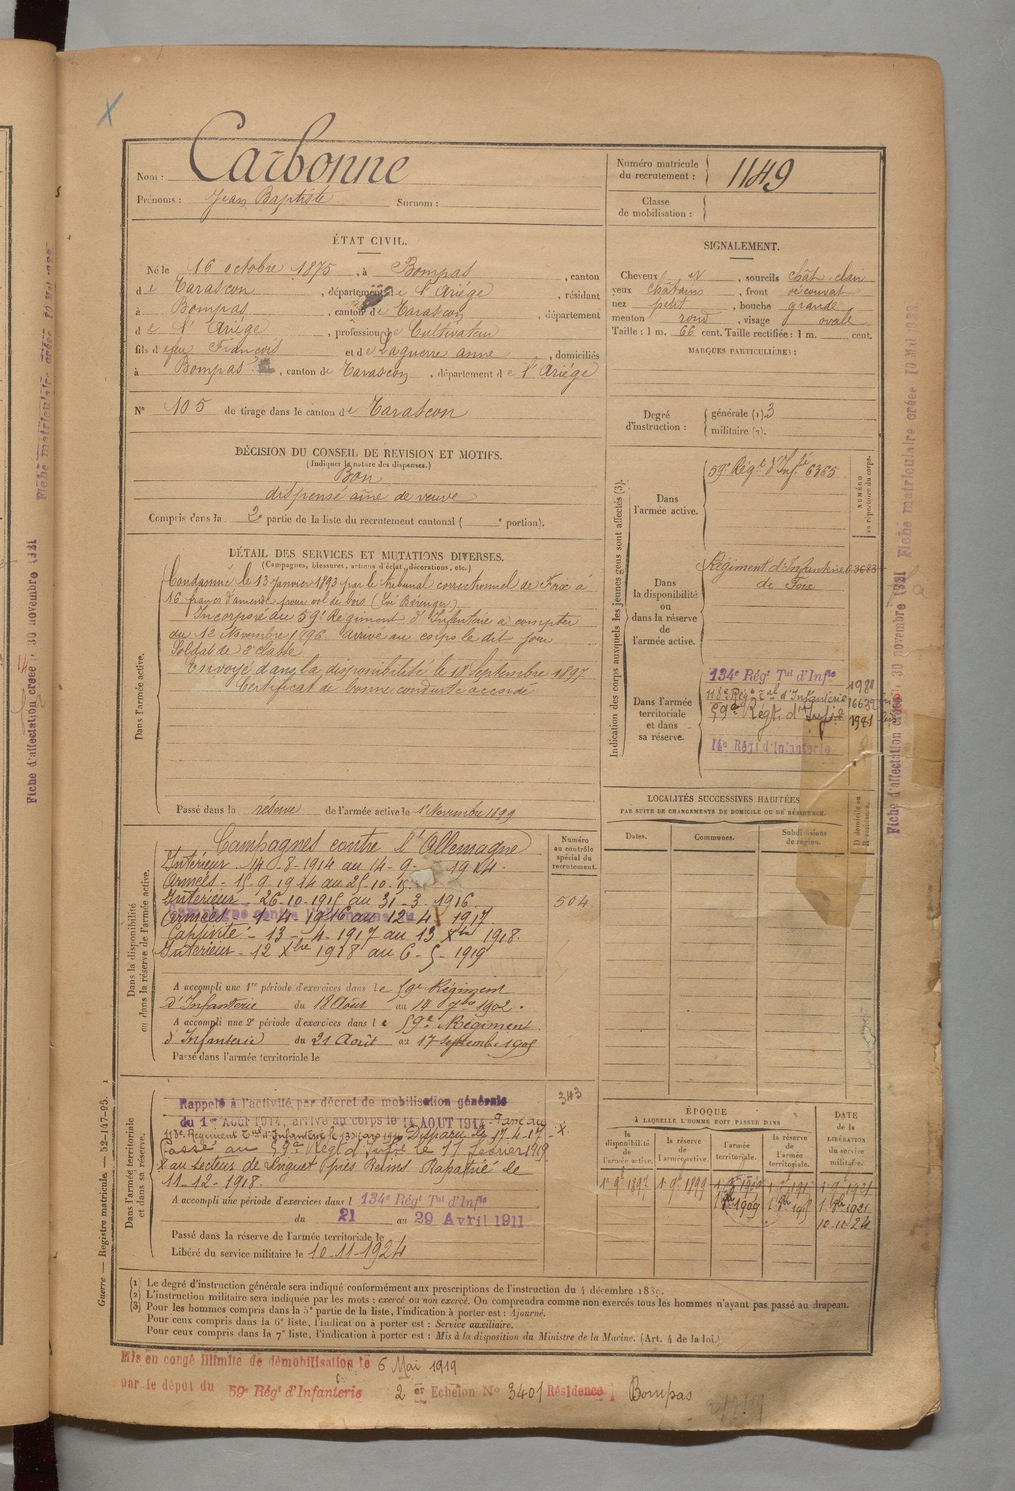 Nom : Carbonne
Prénoms : Jean Baptiste Surnom :
Numéro matricule du recrutement : 1149
Classe de mobilisation :
ÉTAT CIVIL.
Né le 16 octobre 1875, à Bompas, canton
de Tarascon, département de l'Ariége, résidant
à Bompas, canton de Tarascon, département
de l'Ariége, profession de Cultivateur
fils de feu François et de Laguerre anne, domiciliés
à Bompas, canton de Tarascon, département de l'Ariége
N° 105 de tirage dans le canton de Tarascon
SIGNALEMENT.
Cheveux et, sourcils chât. clair
yeux châtains, front découvert
nez petit, bouche grande
menton rond, visage ovale
Taille : 1 m. 66 cent. Taille rectifiée : 1 m. cent.
MARQUES PARTICULIÈRES :
Degré d'instruction : générale (1) 3
militaire (2).
DÉCISION DU CONSEIL DE REVISION ET MOTIFS.
(Indiquer la nature des dispenses.)
Bon
dispensé aîné de veuve
Compris dans la 2e partie de la liste du recrutement cantonal ( e portion).
DÉTAIL DES SERVICES ET MUTATIONS DIVERSES.
(Campagnes, blessures, actions d'éclat, décorations, etc.)
Dans l'armée active.
Condamné le 13 janvier 1893 par le tribunal correctionnel de Foix à
16 francs d'amende pour vol de bois (Loi Bérenger)
Incorporé au 59e Régiment d'Infanterie à compter
du 12 Novembre 1896. Arrivé au corps le dit jour
Soldat de 2e classe
Envoyé dans la disponibilité le 18 Septembre 1897
Certificat de bonne conduite accordé
Passé dans la réserve de l'armée active le 1er Novembre 1899
Indication des corps auxquels les jeunes gens sont affectés (3).
NUMÉRO au répertoire du corps.
Dans l'armée active.
59e Régt d'Infie 6365
Dans la disponibilité ou dans la réserve de l'armée active.
Régiment d'Infanterie
de Foix
Dans l'armée territoriale et dans sa réserve.
134e Régt Tal d'Infie 1980
118e Régt Tal d'Infanterie 16632
59e Régt. d'Infie 1981
14e Régt d'Infanterie
LOCALITÉS SUCCESSIVES HABITÉES
PAR SUITE DE CHANGEMENTS DE DOMICILE OU DE RÉSIDENCE.
Dates. Communes. Subdivisions de région.
Dans la disponibilité ou dans la réserve de l'armée active.
Numéro au contrôle spécial du recrutement.
504
Campagnes contre l'Allemagne
Intérieur 14-8-1914 au 14-9-1914.
Armées - 15-9-1914 au 25-10-15
Intérieur - 26-10-1915 au 31-3-1916
Armées - 1-4-1916 au 12-4-1917
Captivité - 13-4-1917 au 13 Xbre 1918.
Intérieur - 12 Xbre 1918 au 6-5-1919
A accompli une 1re période d'exercices dans le 59e Régiment
d'Infanterie du 18 Août au 14 7bre 1902.
A accompli une 2e période d'exercices dans le 59e Régiment
d'Infanterie du 21 Août au 17 septembre 1905
Passé dans l'armée territoriale le
Dans l'armée territoriale et dans sa réserve.
343
Rappelé à l'activité par décret de mobilisation générale
du 1er AOUT 1914, arrivé au corps le 14 AOUT 1914 Passé au
118e Régiment Tal d'Infanterie Disparu le 17-4-17 X
Passé au 59e Régt d'Infie le 17 février 1919
X au secteur de Linguet (près Reims Rapatrié le
11-12-1918.
A accompli une période d'exercices dans l 134e Régt Tal d'Infie
du 21 au 29 Avril 1911
Passé dans la réserve de l'armée territoriale le
Libéré du service militaire le 10-11-1924
ÉPOQUE
À LAQUELLE L'HOMME DOIT PASSER DANS
la disponibilité de l'armée active.
la réserve de l'armée active.
l'armée territoriale.
la réserve de l'armée territoriale.
DATE DE LA LIBÉRATION DU SERVICE MILITAIRE.
1er 9bre 1897 1er 9bre 1899
10-11-24
Guerre — Registre matricule. — 52-147-95.
(1) Le degré d'instruction générale sera indiqué conformément aux prescriptions de l'instruction du 4 décembre 1889.
(2) L'instruction militaire sera indiquée par les mots : exercé ou non exercé. On comprendra comme non exercés tous les hommes n'ayant pas passé au drapeau.
(3) Pour les hommes compris dans la 5e partie de la liste, l'indication à porter est : Ajourné.
Pour ceux compris dans la 6e liste, l'indication à porter est : Service auxiliaire.
Pour ceux compris dans la 7e liste, l'indication à porter est : Mis à la disposition du Ministre de la Marine. (Art. 4 de la loi.)
Mis en congé illimité de démobilisation le 6 Mai 1919
par le dépôt du 59e Régt d'Infanterie 2 er Echelon N° 3401 Résidence Bompas
Fiche d'affectation créée : 30 novembre 1921 Fiche matriculaire créée 10 Mai
Fiche d'affectation créée : 30 novembre 1921 Fiche matriculaire créée